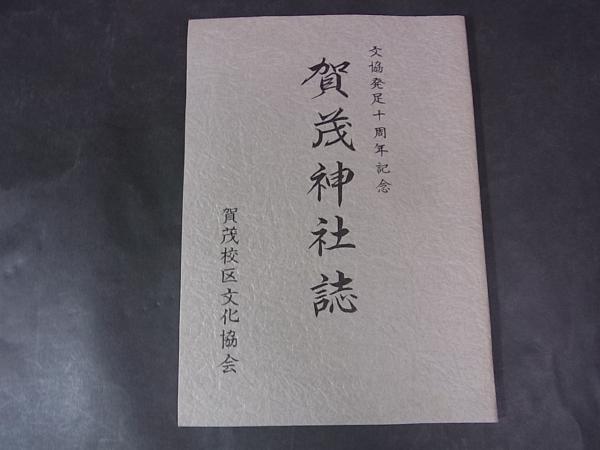 文協発足十周年記念
賀茂神社誌
賀茂校区文化協会